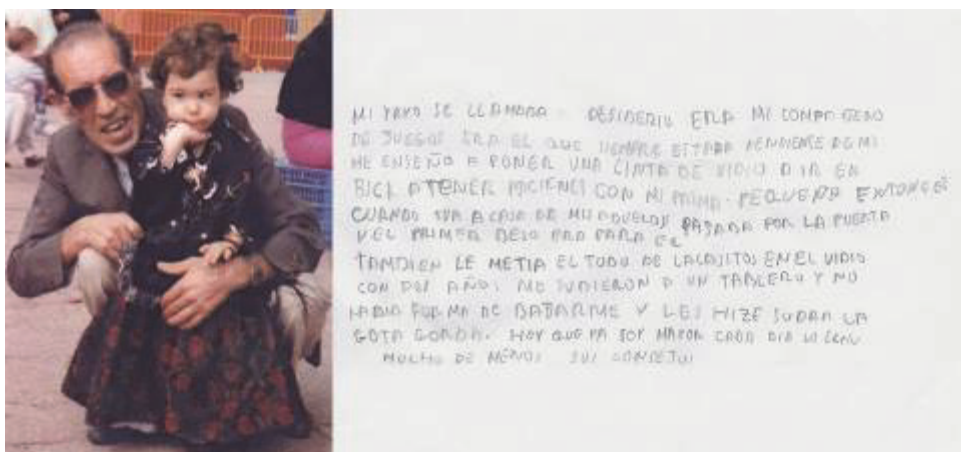 MI YAYO SE LLAMABA DESIDERIO ERA MI COMPAÑERO
DE JUEGOS ERA EL QUE SIEMPRE ESTABA PENDIENTE DE MI
ME ENSEÑO A PONER UNA CINTA DE VIDIO A IR EN
BICI A TENER PACIENCI CON MI PRIMA PEQUEÑA ENTONCES
CUANDO IVA A CASA DE MIS ABUELOS PASABA POR LA PUERTA
Y EL PRIMER BESO ERA PARA EL
TAMBIEN LE METIA EL TUBO DE LACASITOS EN EL VIDIO
CON DOS AÑOS ME SUBIERON A UN TABLERO Y NO
HABIA FORMA DE BAJARME Y LES HIZE SUDAR LA
GOTA GORDA. HOY QUE YA SOY MAYOR CADA DIA LO
MUCHO DE MENOS SUS CONSEJOS